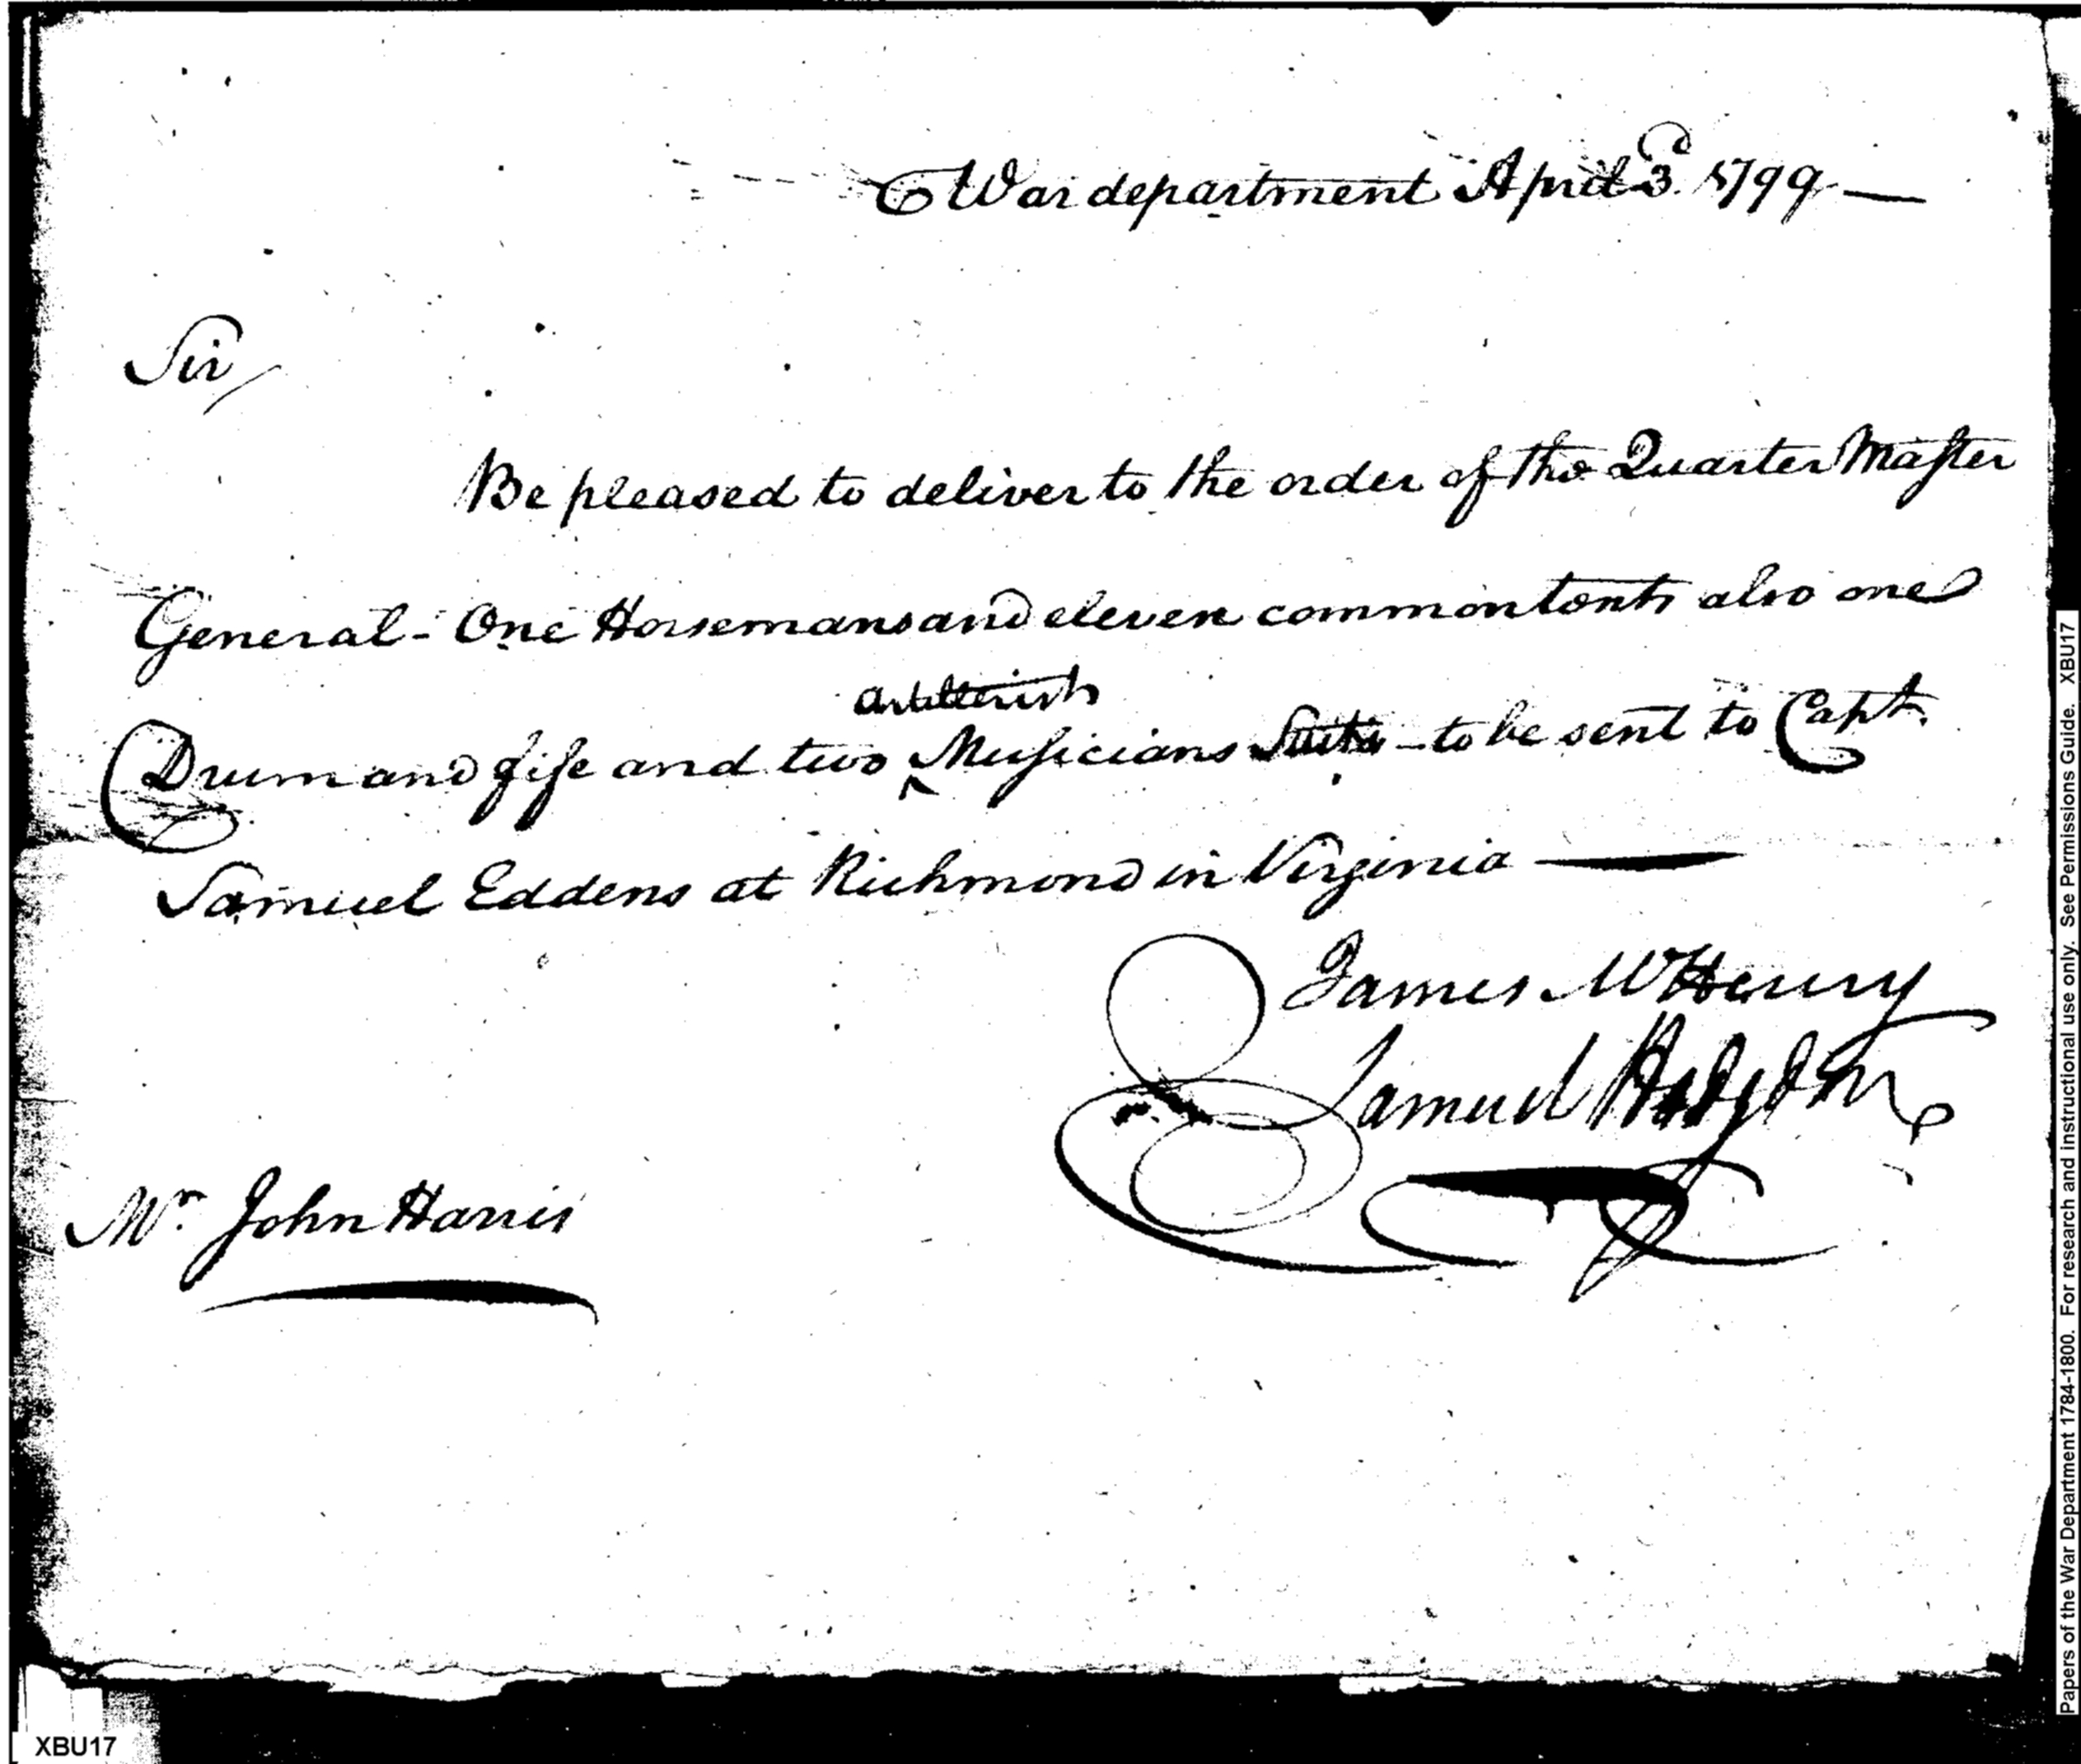 War department April 3d. 1799 —
Sir
Be pleased to deliver to the order of the Quarter Master
General - One Horsemans and eleven common tents also one
artillerists
Drum and fife and two ^ Musicians Suits - to be sent to Capt.
Samuel Eddens at Richmond in Virginia —
James McHenry
Samuel Hodgdon
Mr. John Harris
XBU17
Papers of the War Department 1784-1800. For research and instructional use only. See Permissions Guide. XBU17